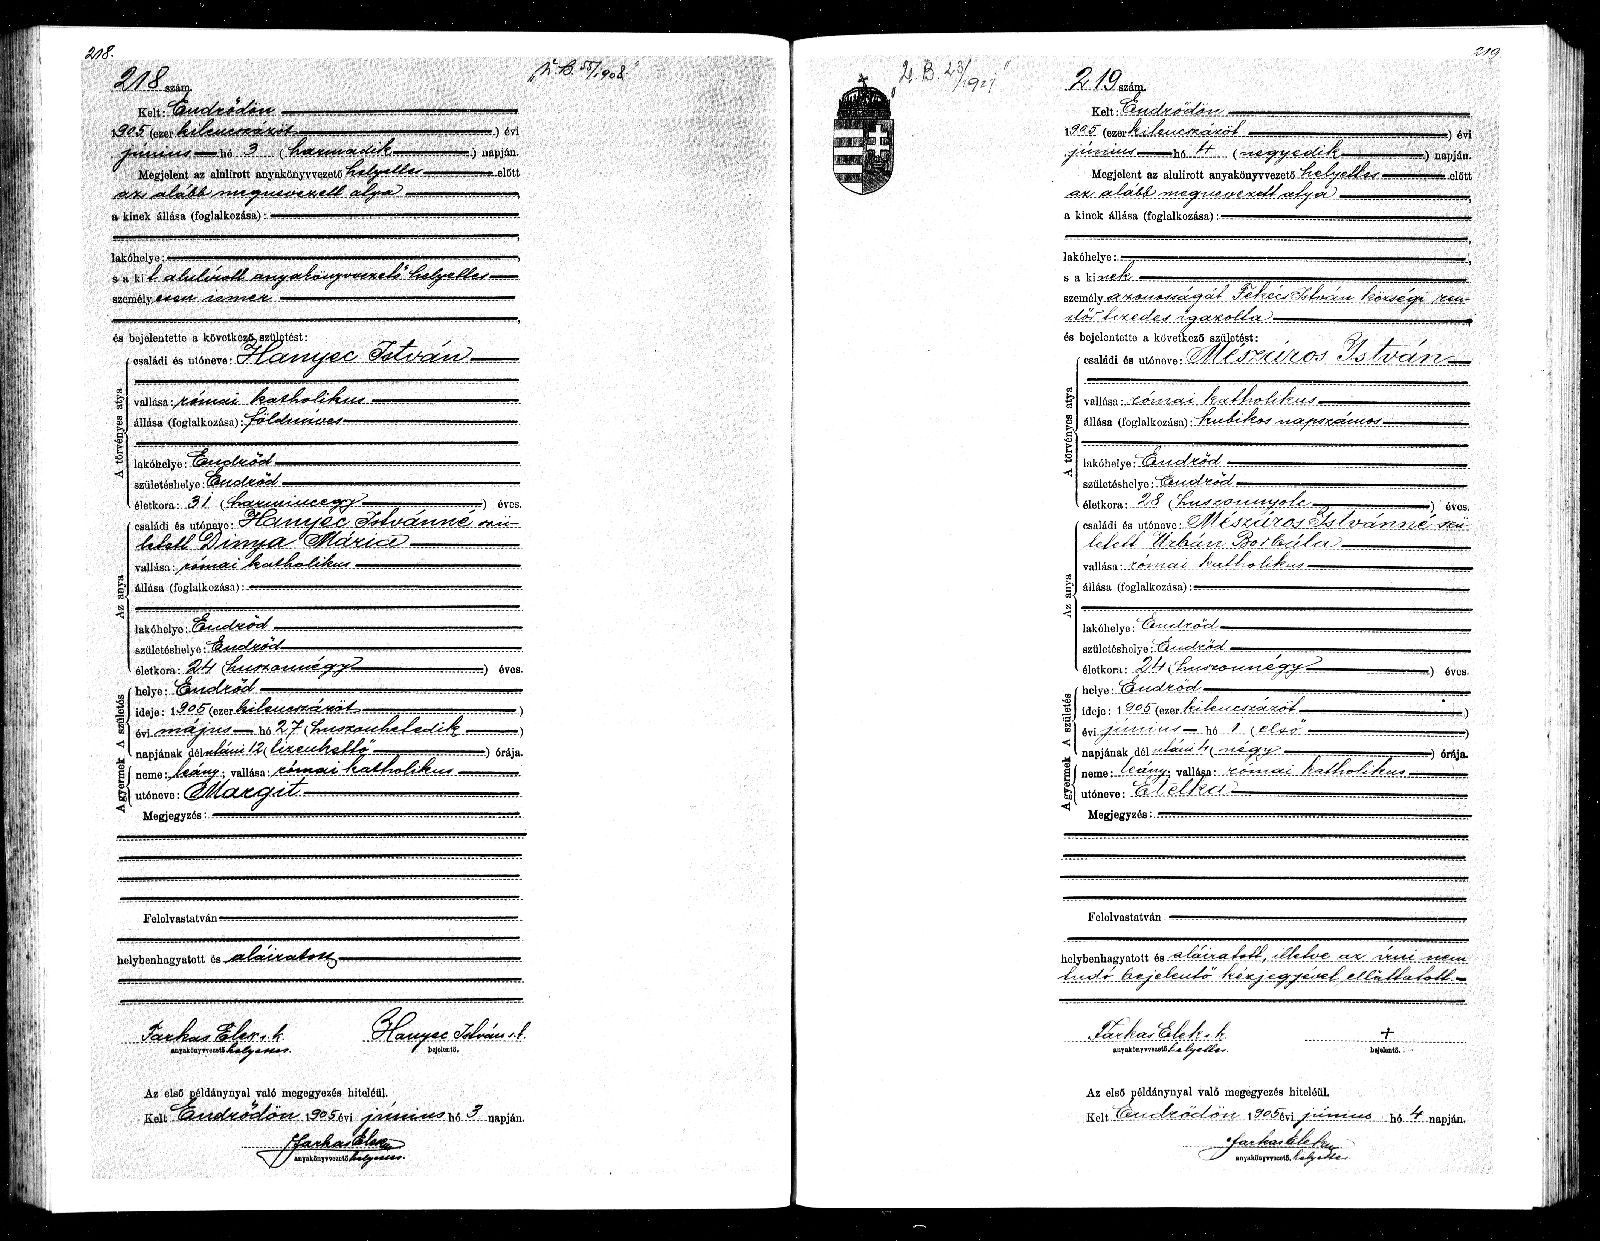 218.
218 szám.
Kelt: Endrődön
1905 (ezer kilencszázöt) évi
június hó 3 (harmadik) napján.
Megjelent az alulirott anyakönyvvezető helyettes előtt
az alább megnevezett atya
a kinek állása (foglalkozása):
lakóhelye:
s a kit alulirott anyakönyvvezető helyettes
személyesen ismer
és bejelentette a következő születést:
A törvényes atya
családi és utóneve: Hanyec István
vallása: római katholikus
állása (foglalkozása): földmives
lakóhelye: Endrőd
születéshelye: Endrőd
életkora: 31 (harmincegy) éves.
Az anya
családi és utóneve: Hanyec Istvánné szü-
letett Dinya Mária
vallása: római katholikus
állása (foglalkozása):
lakóhelye: Endrőd
születéshelye: Endrőd
életkora: 24 (huszonnégy) éves.
A születés
helye: Endrőd
ideje: 1905 (ezer kilencszázöt)
évi május hó 27 (huszonhetedik)
napjának délutáni 12 (tizenkettő) órája.
A gyermek
neme: leány; vallása: római katholikus
utóneve: Margit
Megjegyzés:
Felolvastatván
helybenhagyatott és aláiratott
Farkas Elek s. k. Hanyec István s. k.
anyakönyvvezető helyettes. bejelentő.
Az első példánynyal való megegyezés hiteléül.
Kelt Endrődön 1905 évi június hó 3 napján.
Farkas Elek
anyakönyvvezető helyettes.
219
219 szám.
Kelt: Endrődön
1905 (ezer kilencszázöt) évi
június hó 4 (negyedik) napján.
Megjelent az alulirott anyakönyvvezető helyettes előtt
az alább megnevezett atya
a kinek állása (foglalkozása):
lakóhelye:
s a kinek
személyazonosságát Fekécs István községi ren-
dőr tizedes igazolta
és bejelentette a következő születést:
A törvényes atya
családi és utóneve: Mészáros István
vallása: római katholikus
állása (foglalkozása): kubikos napszámos
lakóhelye: Endrőd
születéshelye: Endrőd
életkora: 28 (huszonnyolc) éves.
Az anya
családi és utóneve: Mészáros Istvánné szü-
letett Urbán Borbála
vallása: római katholikus
állása (foglalkozása):
lakóhelye: Endrőd
születéshelye: Endrőd
életkora: 24 (huszonnégy) éves.
A születés
helye: Endrőd
ideje: 1905 (ezer kilencszázöt)
évi június hó 1 (első)
napjának délutáni 4 (négy) órája.
A gyermek
neme: leány; vallása: római katholikus
utóneve: Etelka
Megjegyzés:
Felolvastatván
helybenhagyatott és aláiratott, illetve az irni nem
tudó bejelentő kézjegyével elláttatott
Farkas Elek s. k. +
anyakönyvvezető helyettes. bejelentő.
Az első példánynyal való megegyezés hiteléül.
Kelt Endrődön 1905 évi június hó 4 napján.
Farkas Elek
anyakönyvvezető helyettes